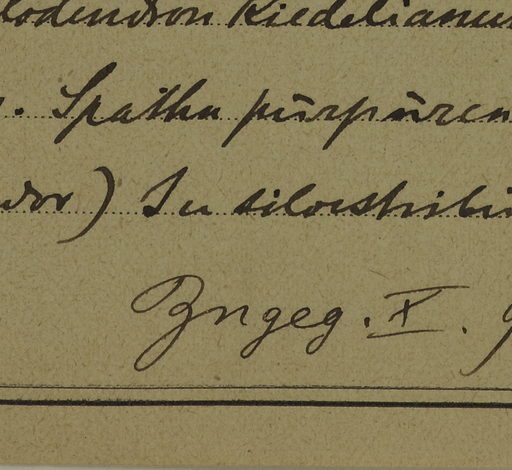 lodendron Riedelianum
. Spatha purpurea
dor) In silvestribu
Zngeg. X.